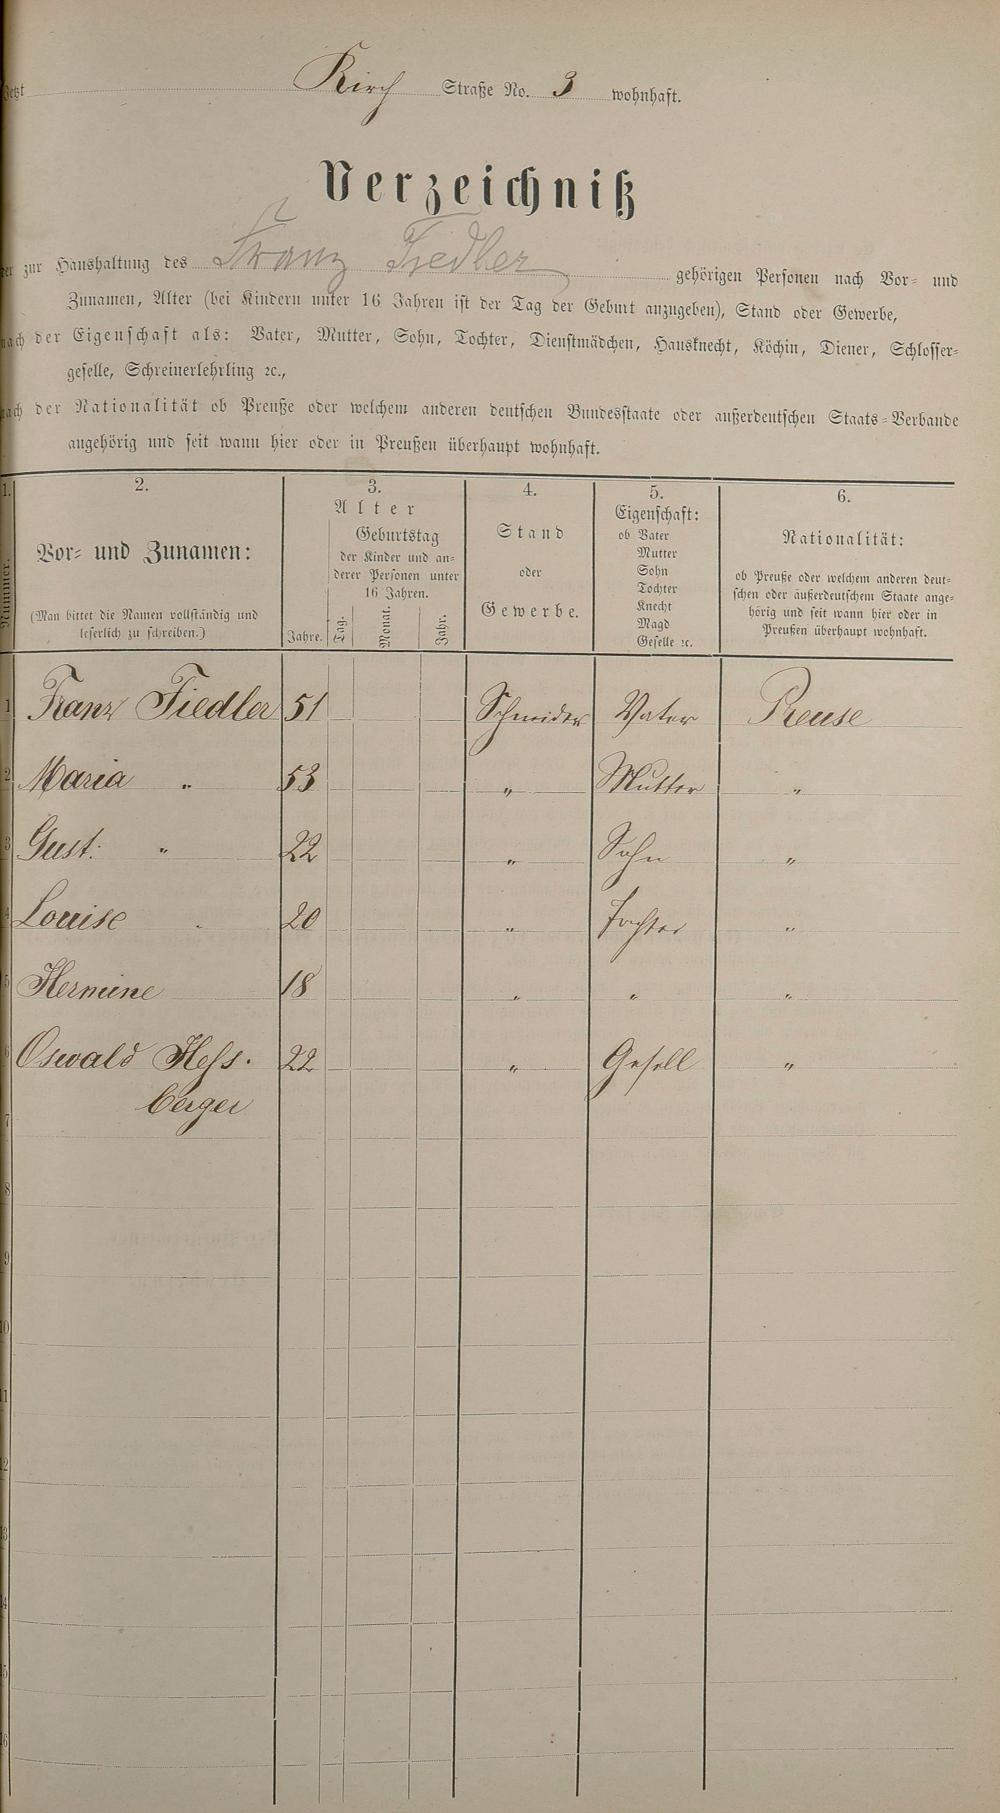 Jetzt Kirch Straße No. 3 wohnhaft.
Verzeichniß
der zur Haushaltung des Franz Fiedler gehörigen Personen nach Vor- und
Zunamen, Alter (bei Kindern unter 16 Jahren ist der Tag der Geburt anzugeben), Stand oder Gewerbe,
nach der Eigenschaft als: Vater, Mutter, Sohn, Tochter, Dienstmädchen, Hausknecht, Köchin, Diener, Schlosser-
geselle, Schreinerlehrling ꝛc.,
nach der Nationalität ob Preuße oder welchem anderen deutschen Bundesstaate oder außerdeutschen Staats-Verbande
angehörig und seit wann hier oder in Preußen überhaupt wohnhaft.
1.
Nummer.
2.
Vor- und Zunamen:
(Man bittet die Namen vollständig und
leserlich zu schreiben.)
3.
Alter
Jahre.
Geburtstag
der Kinder und an-
derer Personen unter
16 Jahren.
Tag.
Monat.
Jahr.
4.
Stand
oder
Gewerbe.
5.
Eigenschaft:
ob Vater
Mutter
Sohn
Tochter
Knecht
Magd
Geselle ꝛc.
6.
Nationalität:
ob Preuße oder welchem anderen deut-
schen oder außerdeutschem Staate ange-
hörig und seit wann hier oder in
Preußen überhaupt wohnhaft.
1 Franz Fiedler 51 Schneider Vater Preuse
2 Maria " 53 " Mutter "
3 Gust: " 22 " Sohn "
4 Louise " 20 " Tochter "
5 Hermine 18 " " "
6 Oswald Hess- 22 " Gesell "
berger
7
8
9
10
11
12
13
14
15
16